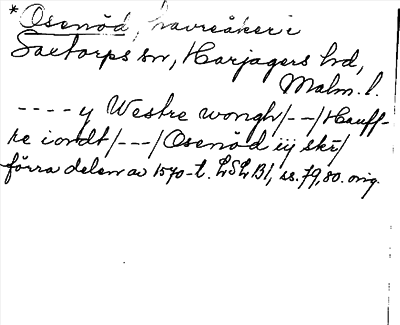 *Osenöd, havreåker i
Saxtorps sn, Harjagers hd,
Malm. l.
---- y Westre wongh/--/Hauff-
re iordt/---/Osenöd iij skr/
förra delen av 1570-t. LSLB1, ss. 79, 80. orig.